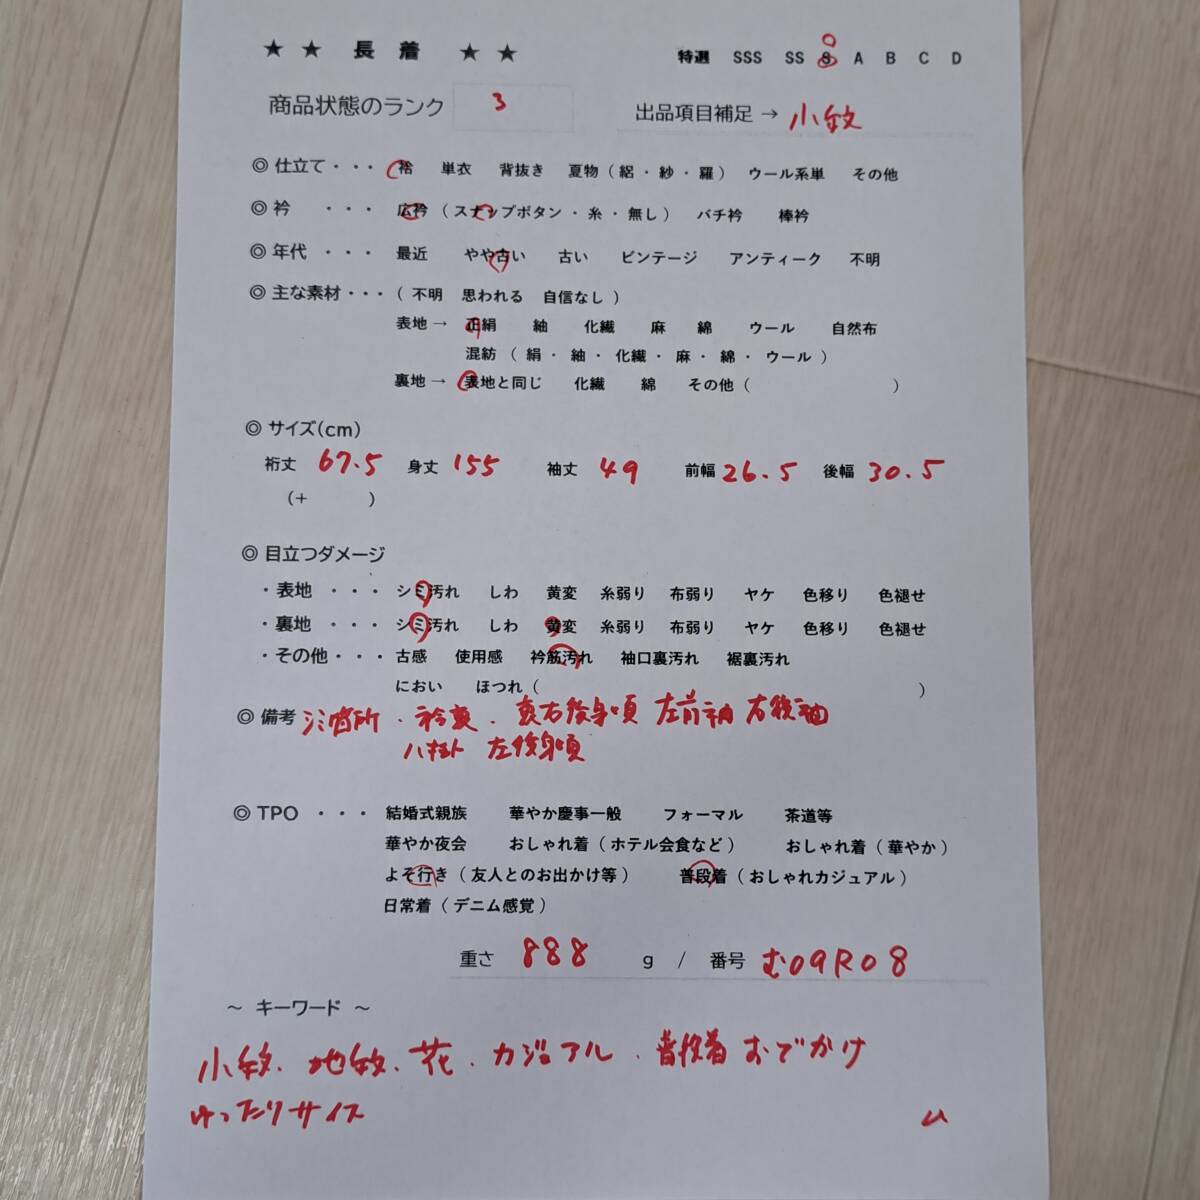 ★ ★ 長 着 ★ ★ 特選 SSS SS S A B C D
商品状態のランク 3 出品項目補足 → 小紋
◎ 仕立て・・・ 袷 単衣 背抜き 夏物(絽・紗・羅) ウール系単 その他
◎ 衿 ・・・ 広衿(スナップボタン・糸・無し) バチ衿 棒衿
◎ 年代 ・・・ 最近 やや古い 古い ビンテージ アンティーク 不明
◎ 主な素材・・・(不明 思われる 自信なし)
表地→ 正絹 紬 化繊 麻 綿 ウール 自然布
混紡(絹・紬・化繊・麻・綿・ウール)
裏地→ 表地と同じ 化繊 綿 その他( )
◎ サイズ(cm)
裄丈 67.5 身丈 155 袖丈 49 前幅 26.5 後幅 30.5
(+ )
◎ 目立つダメージ
・表地 ・・・ シミ汚れ しわ 黄変 糸弱り 布弱り ヤケ 色移り 色褪せ
・裏地 ・・・ シミ汚れ しわ 黄変 糸弱り 布弱り ヤケ 色移り 色褪せ
・その他・・・ 古感 使用感 衿筋汚れ 袖口裏汚れ 裾裏汚れ
におい ほつれ( )
◎ 備考 シミ箇所・衿裏・裏右後身頃 左前袖 右後袖
ハ掛ト 左後身頃
◎ TPO ・・・ 結婚式親族 華やか慶事一般 フォーマル 茶道等
華やか夜会 おしゃれ着(ホテル会食など) おしゃれ着(華やか)
よそ行き(友人とのお出かけ等) 普段着(おしゃれカジュアル)
日常着(デニム感覚)
重さ 888 g / 番号 む09R08
~ キーワード ~
小紋・地紋・花・カジュアル・普段着 おでかけ
ゆったりサイズ